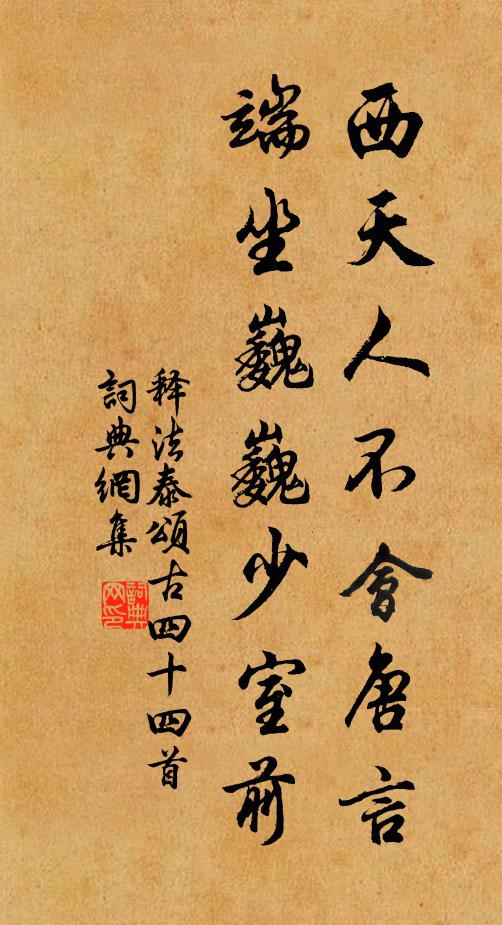 西天人不會唐言
端坐巍巍少室前
释法泰頌古四十四首
詞典網集
詞典
网印